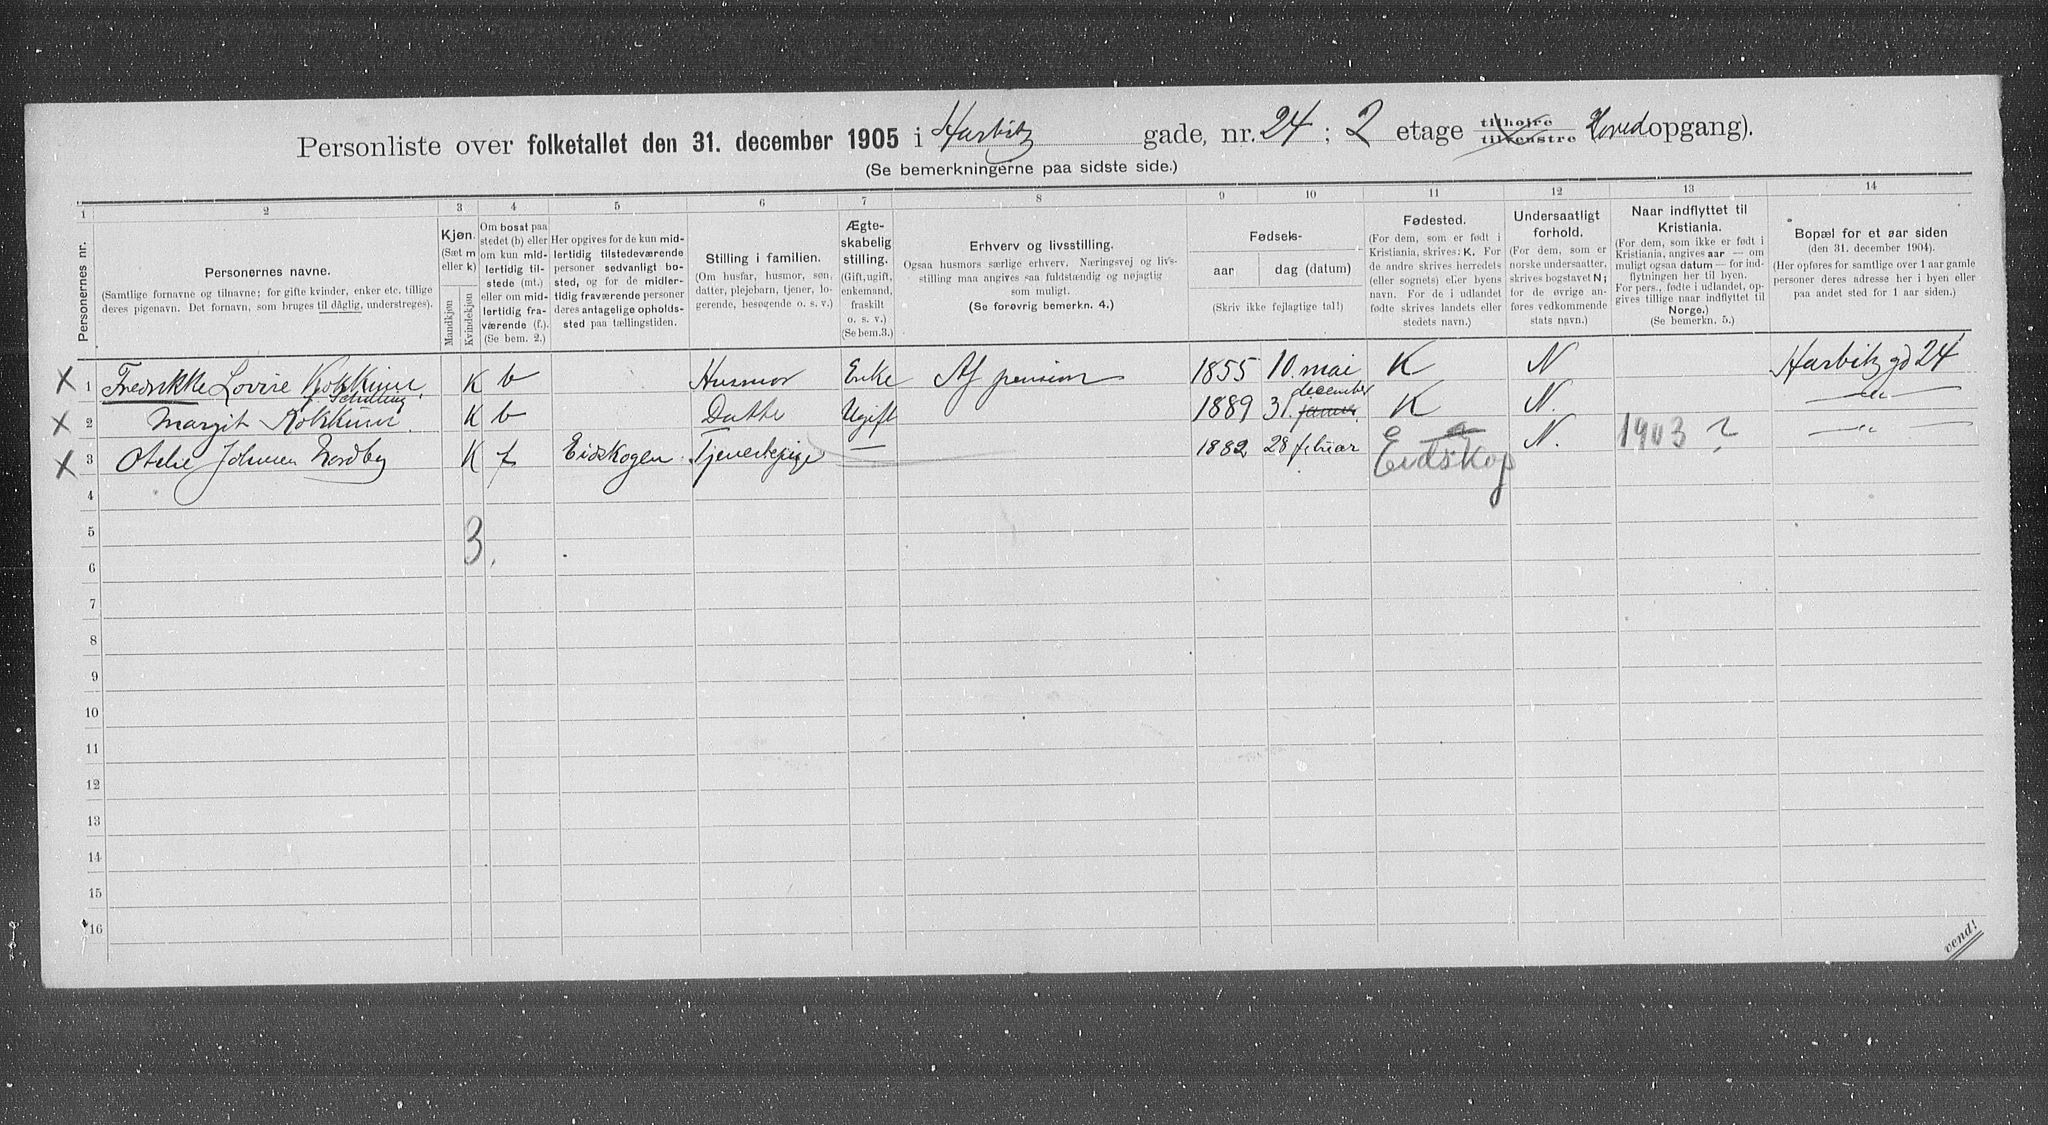 Personliste over folketallet den 31. december 1905 i Harbitz gade, nr. 24 ; 2 etage tilhøire tilvenstre Hovedopgang).
(Se bemerkningerne paa sidste side.)
1 2 3 4 5 6 7 8 9 10 11 12 13 14
Personernes nr.
Personernes navne.
(Samtlige fornavne og tilnavne; for gifte kvinder, enker etc. tillige
deres pigenavn. Det fornavn, som bruges til dåglig, understreges).
Kjøn.
(Sæt m
eller k)
Mandkjøn
Kvindekjøn
Om bosat paa
stedet (b) eller
om kun mid-
lertidig til-
stede (mt.)
eller om mid-
lertidig fra-
værende (f.).
(Se bem. 2.)
Her opgives for de kun mid-
lertidig tilstedeværende
personer sedvanligt bo-
sted, og for de midler-
tidig fraværende personer
deres antagelige opholds-
sted paa tællingstiden.
Stilling i familien.
(Om husfar, husmor, søn,
datter, plejebarn, tjener, lo-
gerende, besøgende o. s. v.)
Ægte-
skabelig
stilling.
(Gift, ugift,
enkemand,
fraskilt
o. s. v.)
(Se bem. 3.)
Erhverv og livsstilling.
Ogsaa husmors særlige erhverv. Næringsvej og livs-
stilling maa angives saa fuldstændig og nøjagtig
som muligt.
(Se forøvrig bemerkn. 4.)
Fødsels-
aar
dag (datum)
(Skriv ikke fejlagtige tal!)
Fødested.
(For dem, som er født i
Kristiania, skrives: K. For
de andre skrives herredets
(eller sognets) eller byens
navn. For de i udlandet
fødte skrives landets eller
stedets navn.)
Undersaatligt
forhold.
(For dem, som er
norske undersaatter,
skrives bogstavet N;
for de øvrige an-
føres vedkommende
stats navn.)
Naar indflyttet til
Kristiania.
(For dem, som ikke er født i
Kristiania, angives aar — om
muligt ogsaa datum — for ind-
flytningen her til byen.
For pers., født i udlandet, op-
gives tillige naar indflyttet til
Norge.)
(Se bemerkn. 5.)
Bopæl for et aar siden
(den 31. december 1904).
(Her opføres for samtlige over 1 aar gamle
personer deres adresse her i byen eller
paa andet sted for 1 aar siden.)
X 1 Fredrikke Lovise K b Husmor Enke Af pension 1855 10. mai K N Harbitz gd 24
f. Schilling
december
X 2 Margit K b Datter Ugift 1889 31. K N. —"—
X 3 Otelie Johnsen Nordby K f Eidskogen Tjenestepige — 1882 28 februar Eidskog N. 1903 ? —"—
4
5
3.
6
7
8
9
10
11
12
13
14
15
16
vend!